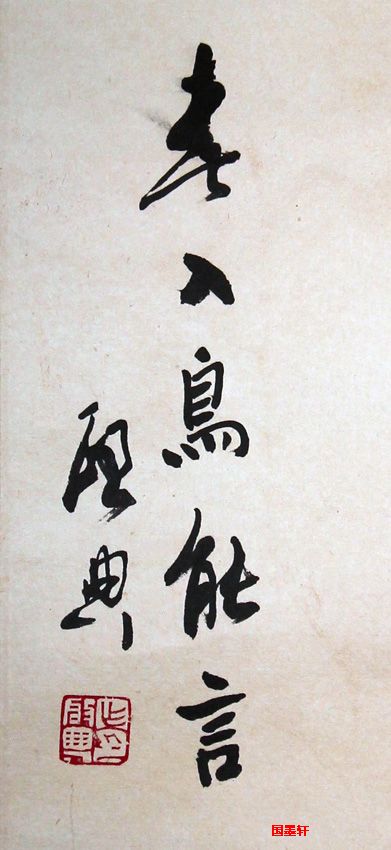 春入鳥能言
典
国墨轩